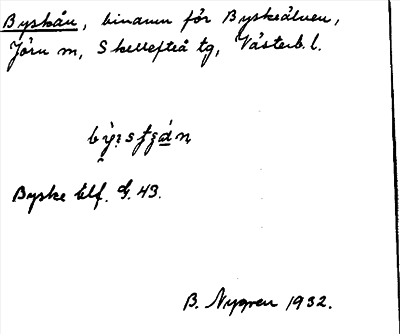 Byskån, binamn för Byskeälven,
Jörn m, Skellefteå tg, Västerb. l.
Byske Elf. G. 43.
B. Nygren 1932.